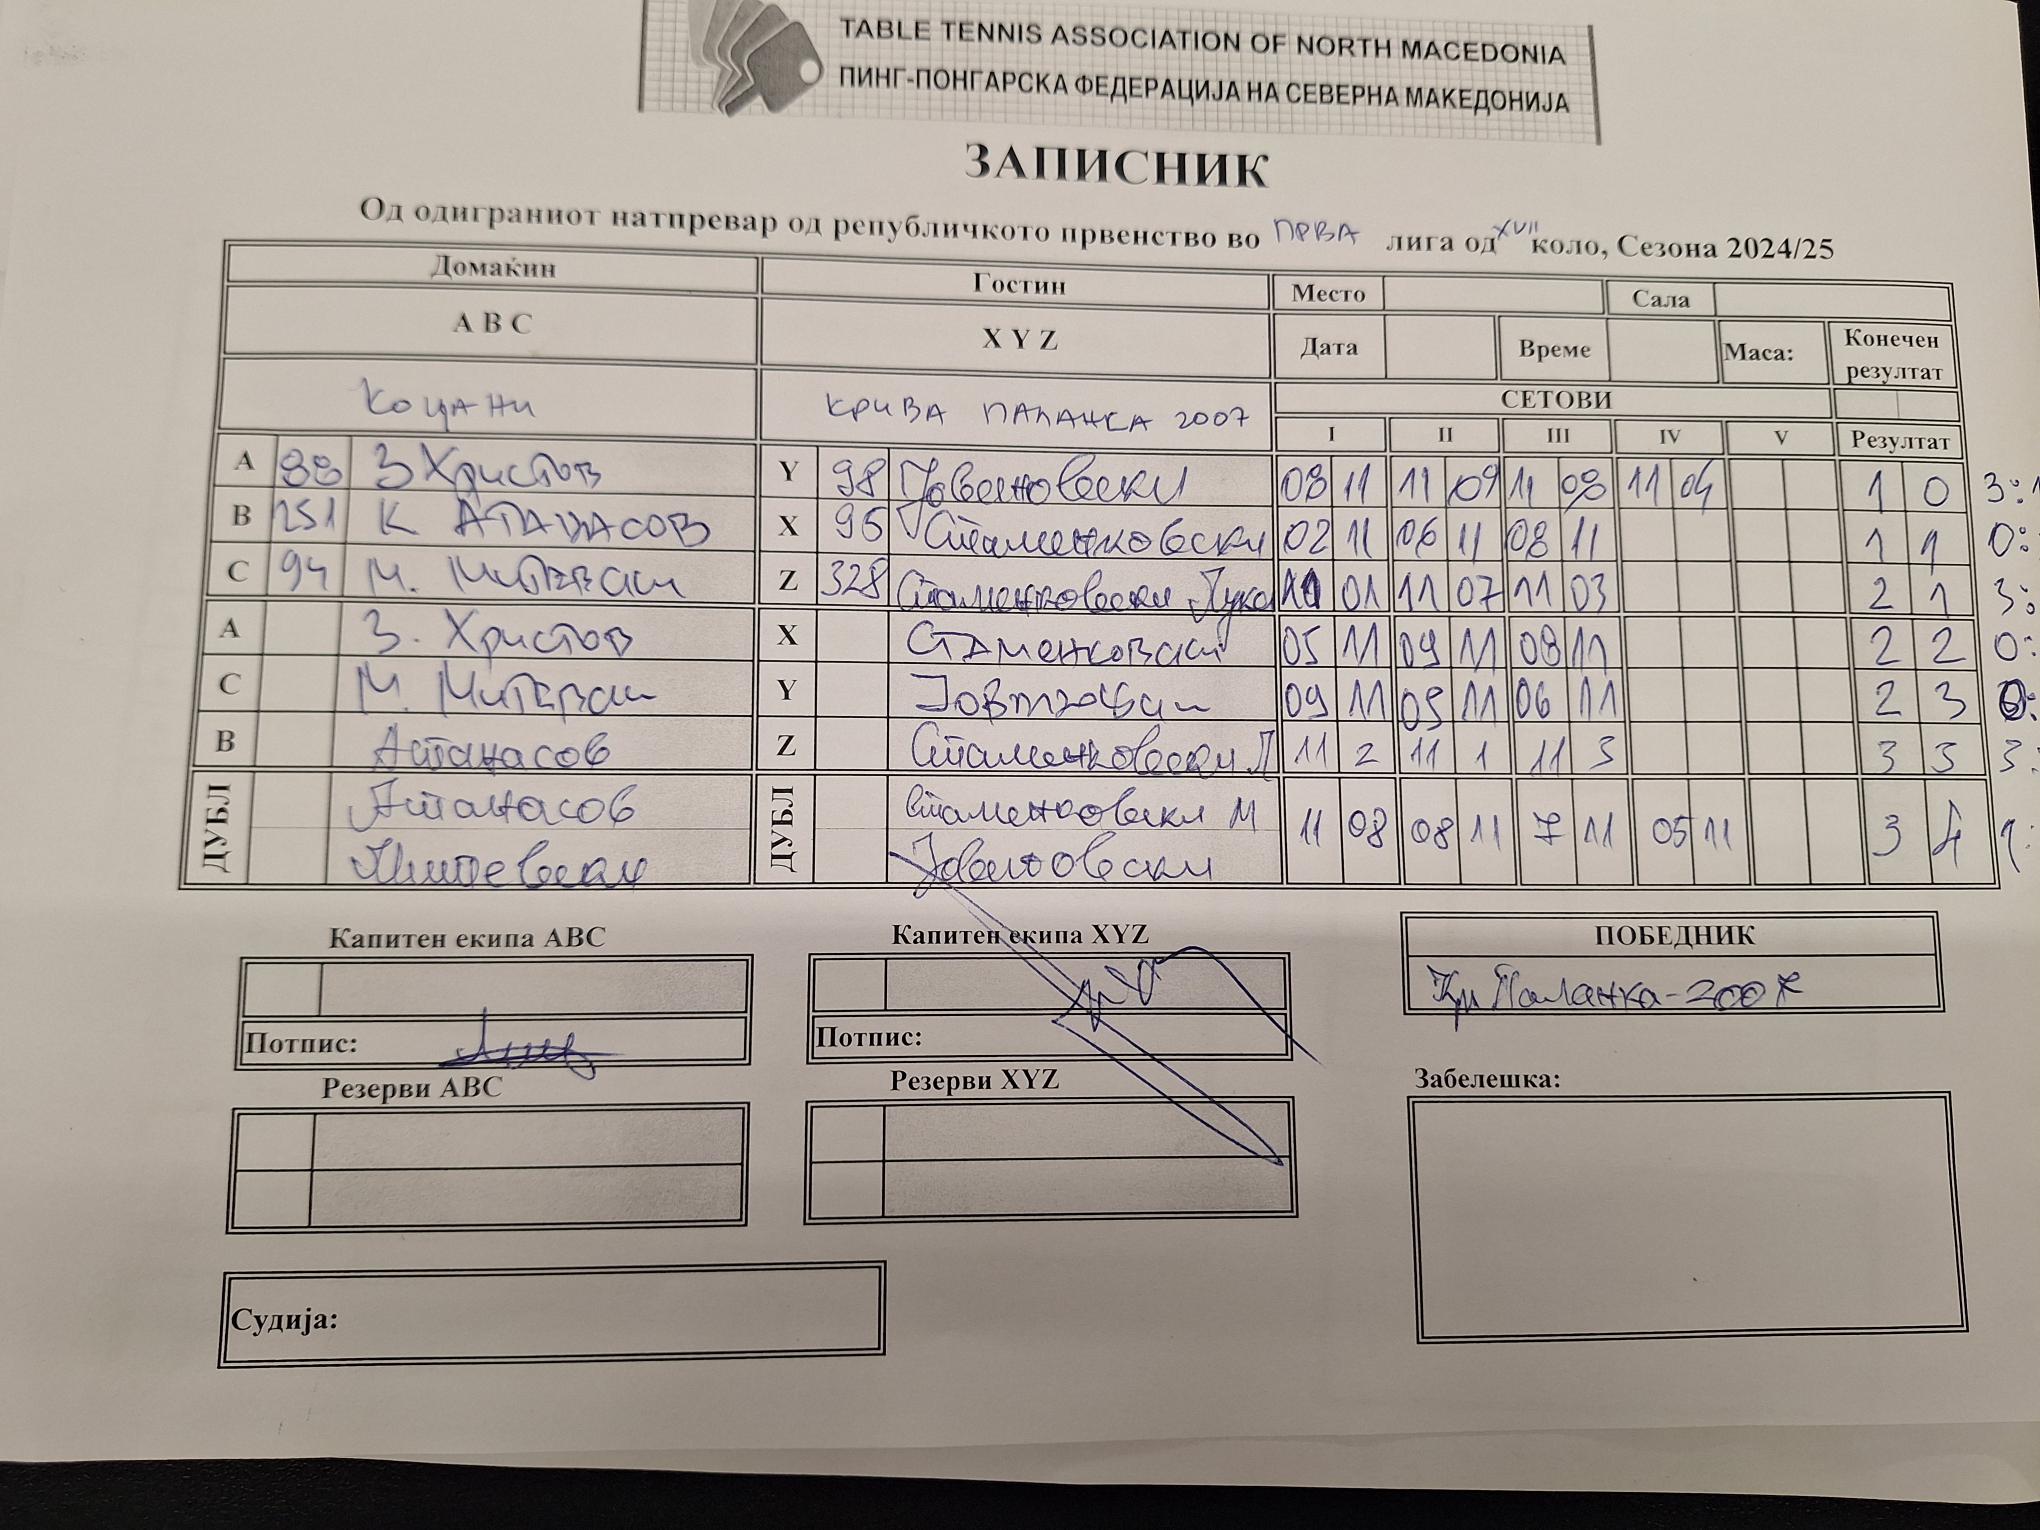 TABLE TENNIS ASSOCIATION OF NORTH MACEDONIA
ПИНГ-ПОНГАРСКА ФЕДЕРАЦИЈА НА СЕВЕРНА МАКЕДОНИЈА
ЗАПИСНИК
Од одиграниот натпревар од републичкото првенство во ПРВА лига од XVII коло, Сезона 2024/25
Домаќин Гостин Место Сала
A B C X Y Z Дата Време Маса: Конечен резултат
Кочани КРИВА ПАЛАНКА 2007 СЕТОВИ
I II III IV V Резултат
A 88 З Христов Y 98 Јовановски 08 11 11 09 11 08 11 04 1 0 3:1
B 251 К АТАНАСОВ X 96 Стаменковски 02 11 06 11 08 11 1 1 0:
C 94 М. Митевски Z 328 Стаменковски Лука 11 01 11 07 11 03 2 1 3:
A З. Христов X Стаменковски 05 11 09 11 08 11 2 2 0:
C М. Митевски Y Јовановски 09 11 05 11 06 11 2 3 0:
B Атанасов Z Стаменковски Л 11 2 11 1 11 3 3 3 3:
ДУБЛ Атанасов ДУБЛ Стаменковски М 11 08 08 11 7 11 05 11 3 4 1:
Митевски Јовановски
Капитен екипа ABC Капитен екипа XYZ ПОБЕДНИК
Кр Паланка-2007
Потпис: Потпис:
Резерви ABC Резерви XYZ Забелешка:
Судија: